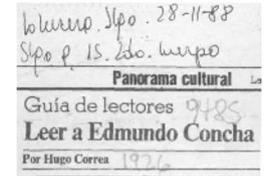 La Tercera. Stgo. 28-11-88
Stgo p. 15. 2do. cuerpo
Panorama cultural
Guía de lectores 9485
Leer a Edmundo Concha
Por Hugo Correa 1926